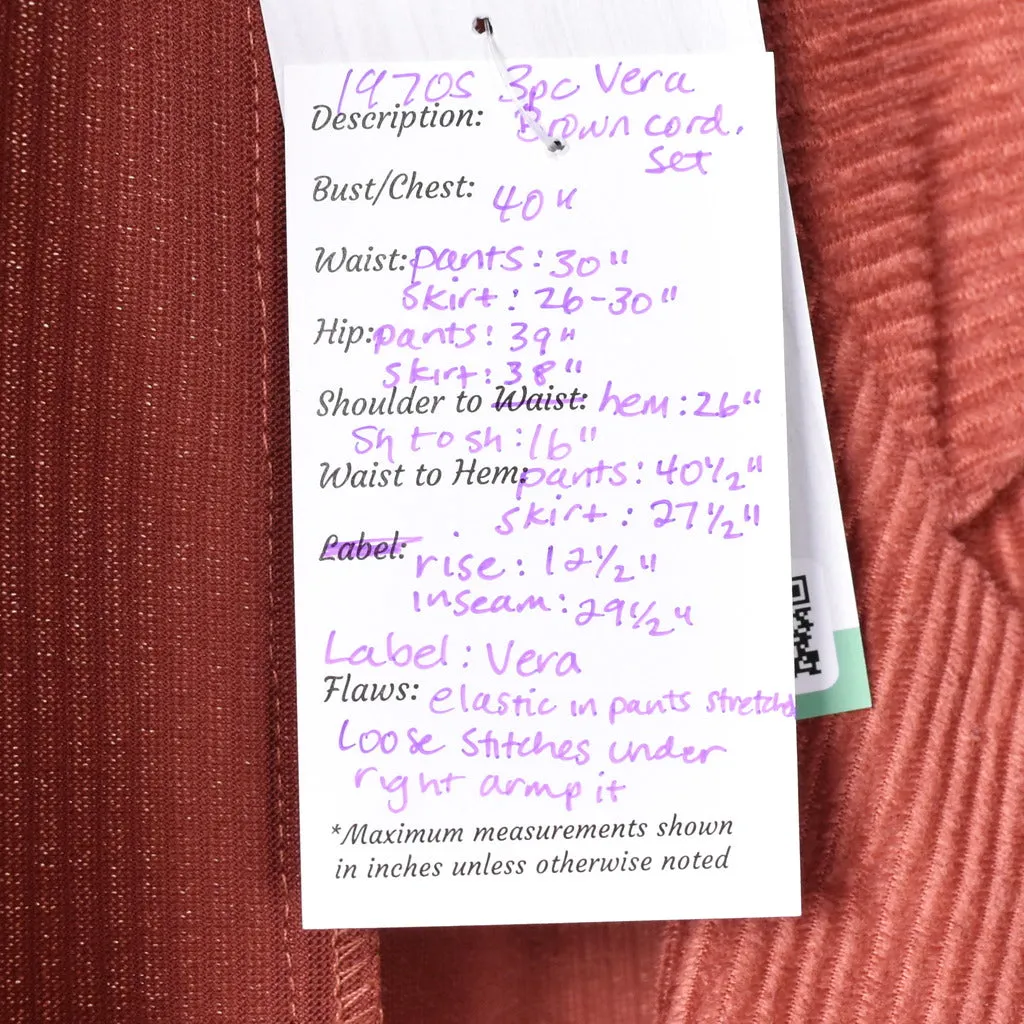 1970s 3pc Vera
Description: Brown cord.
set
Bust/Chest: 40"
Waist: pants: 30"
skirt: 26-30"
Hip: pants: 39"
skirt: 38"
Shoulder to Waist: hem: 26"
Sh to sh: 16"
Waist to Hem: pants: 40 1/2"
skirt: 27 1/2"
Label: rise: 12 1/2"
inseam: 29 1/2"
Label: Vera
Flaws: elastic in pants stretched
Loose stitches under
right armpit
*Maximum measurements shown
in inches unless otherwise noted